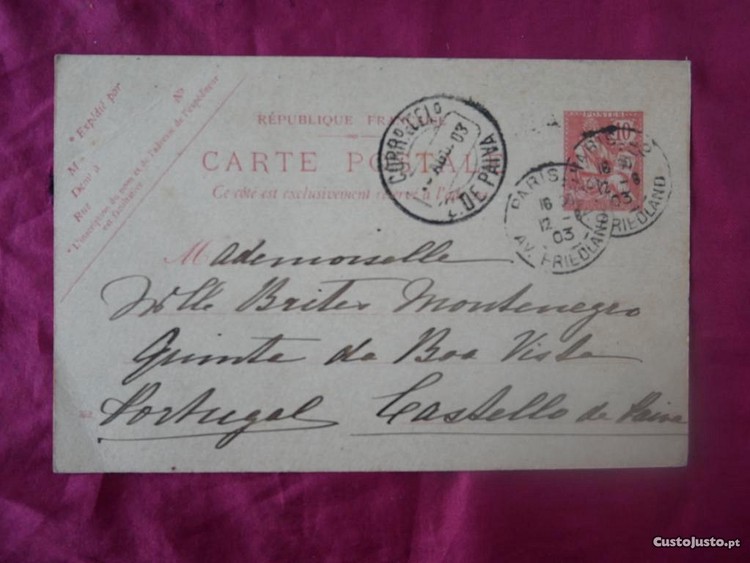 * Expédié par
M
Dem.t à
Rue
N°
*L'inscription du nom et de l'adresse de l'expéditeur
est facultative.
RÉPUBLIQUE FRANÇAISE
CARTE POSTALE
Ce côté est exclusivement réservé à
POSTES
10
CORRO TELO
AGO. 03
C. DE PAIVA
PARIS
16
12 - 8
03
AV. FRIEDLAND
PARIS
16
12 - 8
03
FRIEDLAND
Mademoiselle
Mlle Brites Montenegro
Quinta da Boa Vista
Portugal Castello de Paiva
CustoJusto.pt